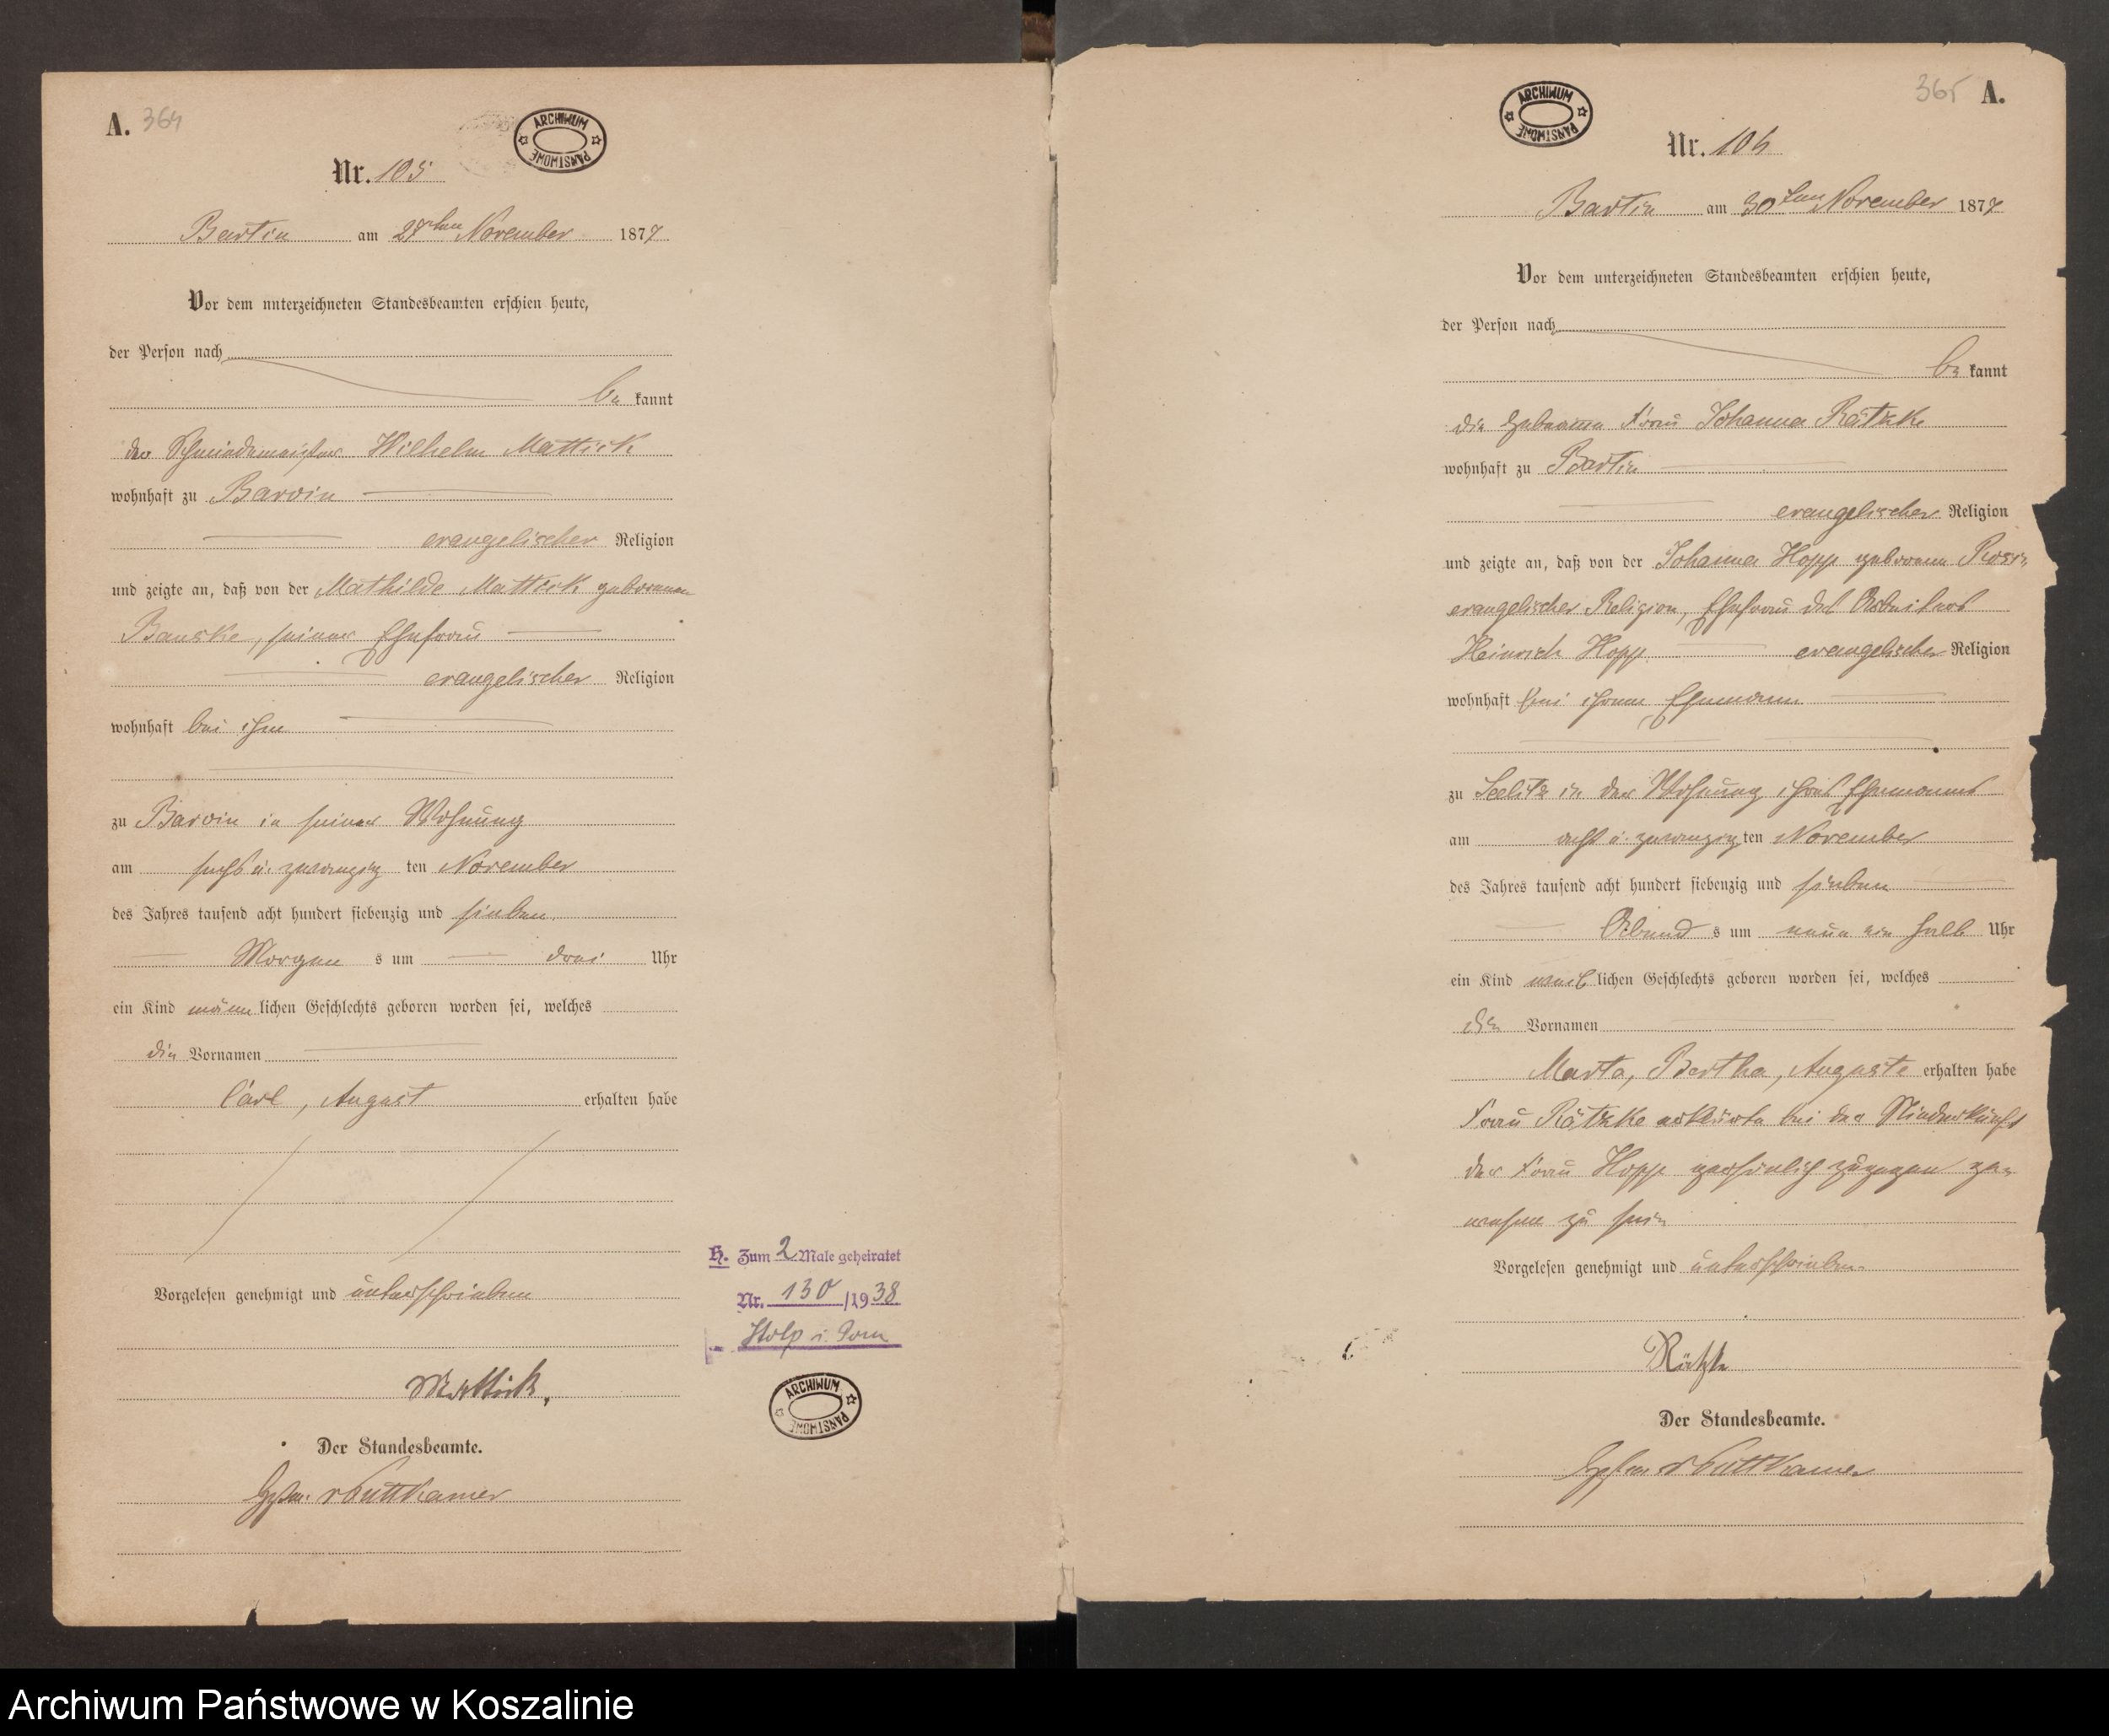 A. 364
ARCHIWUM PAŃSTWOWE
Nr. 105
Bartin am 27ten November 1877
Vor dem unterzeichneten Standesbeamten erschien heute,
der Person nach
be kannt
der Schmiedemeister Wilhelm Mattick
wohnhaft zu Barvin
evangelischer Religion
und zeigte an, daß von der Mathilde Mattick geborenen
Banske, seiner Ehefrau
evangelischer Religion
wohnhaft bei ihm
zu Barvin in seiner Wohnung
am sechs u. zwanzig ten November
des Jahres tausend acht hundert siebenzig und sieben
Morgen s um drei Uhr
ein Kind männ lichen Geschlechts geboren worden sei, welches
die Vornamen
Carl, August erhalten habe
Vorgelesen genehmigt und unterschrieben
Mattick,
Der Standesbeamte.
v Puttkamer
H. Zum 2 Male geheiratet
Nr. 130 /1938
Stolp i. Pom
ARCHIWUM PAŃSTWOWE
365 A.
ARCHIWUM PAŃSTWOWE
Nr. 106
Bartin am 30ten November 1877
Vor dem unterzeichneten Standesbeamten erschien heute,
der Person nach
be kannt
die Hebamme Frau Johanna Rätzke
wohnhaft zu Bartin
evangelischer Religion
und zeigte an, daß von der Johanna Hopp geborene
evangelischer Religion, Ehefrau des Arbeiters
Heinrich Hopp evangelischer Religion
wohnhaft bei ihrem Ehemann
zu Seelitz in der Wohnung ihres Ehemannes
am acht u. zwanzig ten November
des Jahres tausend acht hundert siebenzig und sieben
Abend s um neun ein halb Uhr
ein Kind weib lichen Geschlechts geboren worden sei, welches
die Vornamen
Marta, Bertha, Auguste erhalten habe
Frau Rätzke erklärte bei der Niederkunft
der Frau Hopp persönlich zugegen ge-
wesen zu sein
Vorgelesen genehmigt und unterschrieben.
Rätzke
Der Standesbeamte.
v Puttkamer
Archiwum Państwowe w Koszalinie